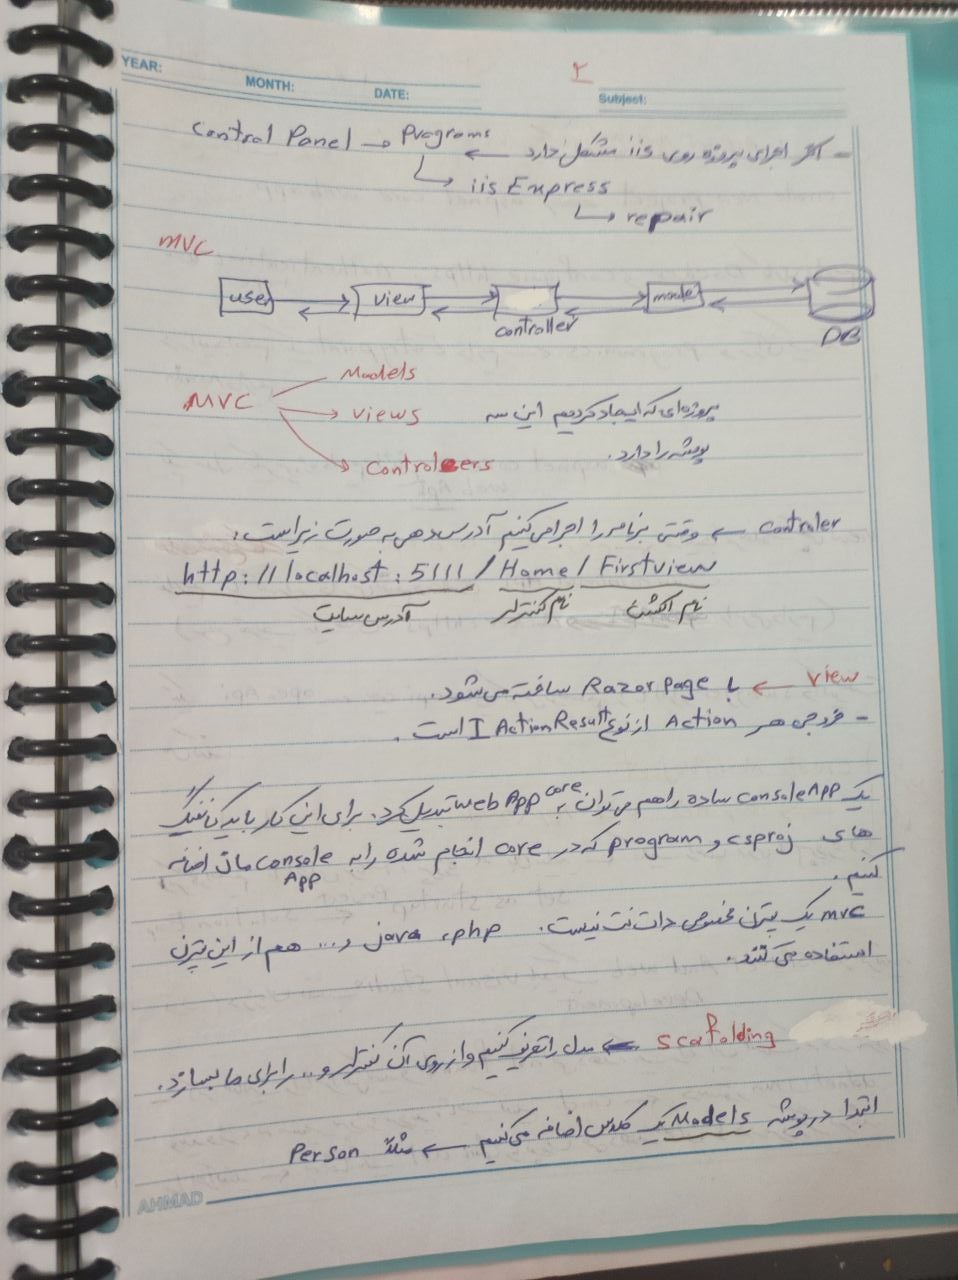 YEAR: MONTH: DATE: Subject:
۲
- اگر اجرای پروژه روی iis مشکل دارد ← Control Panel → Programs
↳ iis Express
↳ repair
MVC
user view controller model DB
MVC Models
Views
Controlers
پروژه‌ای که ایجاد کردیم این سه
پوشه را دارد.
Controler ← وقتی برنامه را اجرا می‌کنیم آدرس‌دهی به صورت زیر است:
http://localhost:5111/Home/Firstview
آدرس سایت نام کنترلر نام اکشن
View ← با Razor Page ساخته می‌شود.
- خروجی هر Action از نوع IActionResult است.
یک ConsoleApp ساده را هم می‌توان به Web App core تبدیل کرد. برای این کار باید کانفیگ
های csproj و program که در core انجام شده را به console App مان اضافه
کنیم.
MVC یک پترن مخصوص دات نت نیست. php، java و... هم از این پترن
استفاده می‌کنند.
Scafolding ← مدل را تعریف کنیم و از روی آن کنترلر و... را برای ما بسازد.
ابتدا در پوشه Models یک کلاس اضافه می‌کنیم ← مثلاً Person
AHMAD